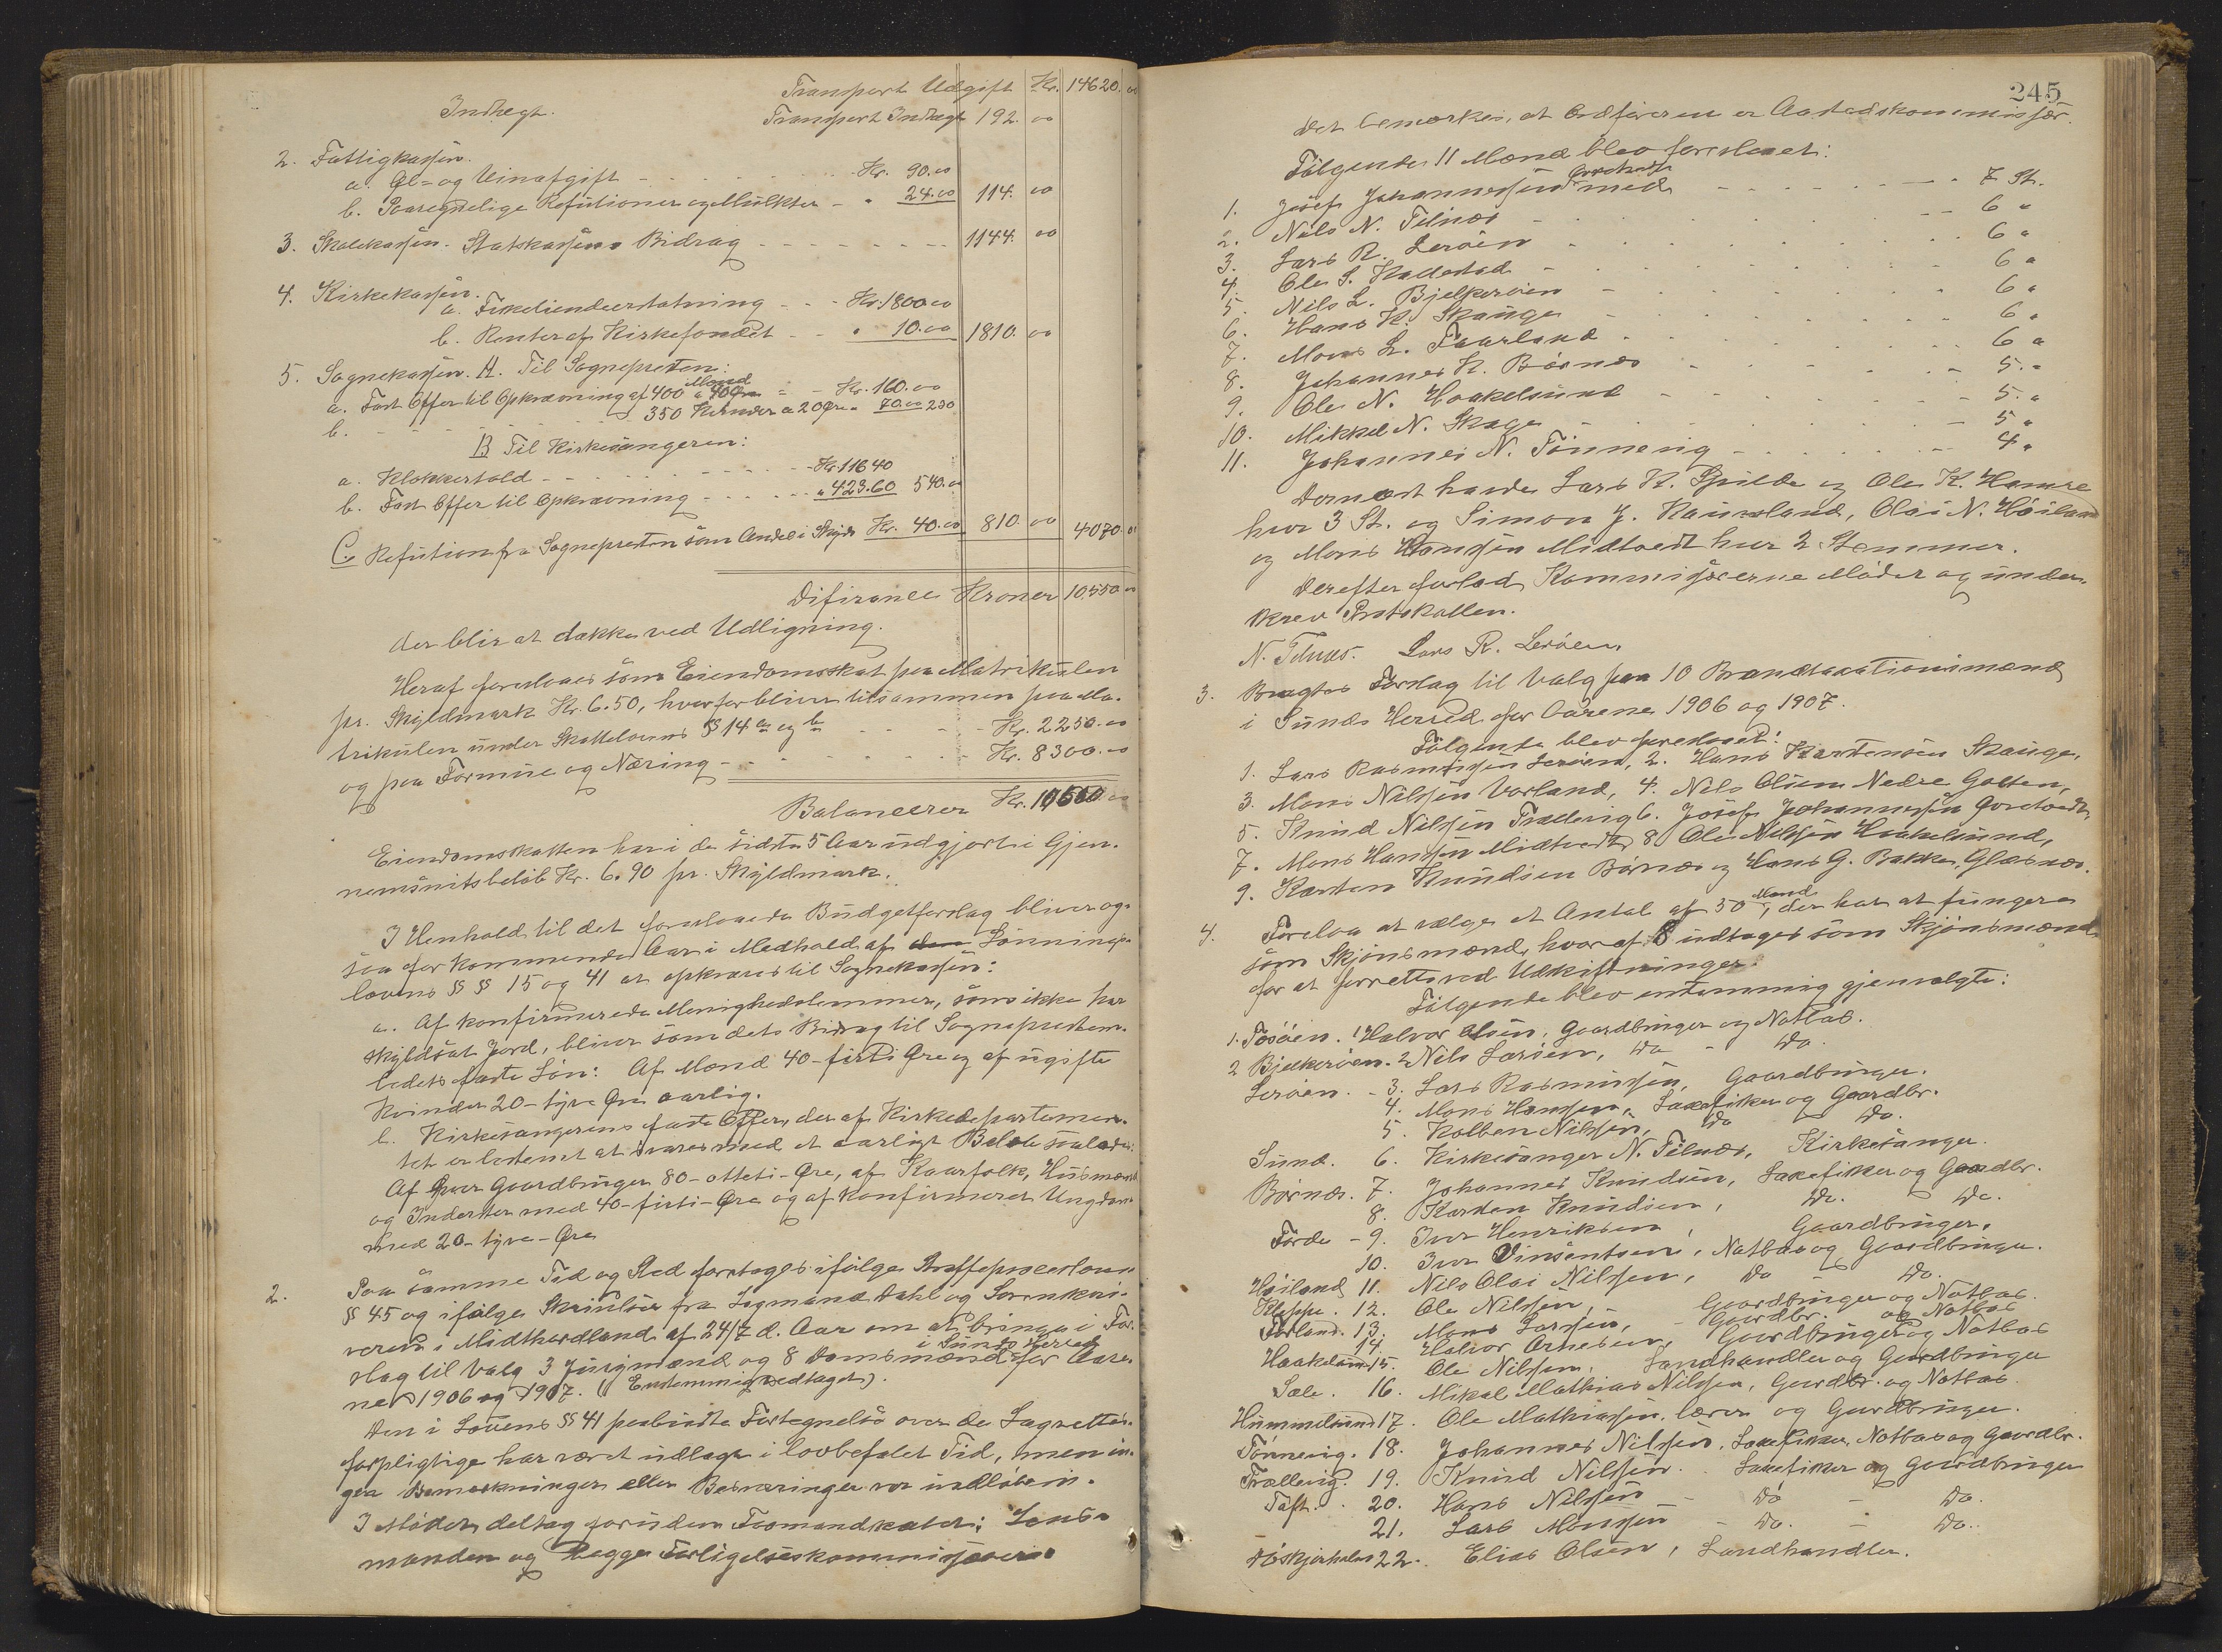 Transport Udgift Kr. 14620. 00
Indtægt. Transport Indtægt 192. 00
2. Fattigkassen.
a. Øl- og Vinafgift - - - Kr. 90.00
b. Paaregnelige Refutioner og Mulkter - " 24.00 114. 00
3. Skolekassen. Statskassens Bidrag - - - 1144. 00
4. Kirkekassen.
a. Fisketiendeerstatning - - - Kr. 1800 00
b. Renter af Kirkefondet - - " 10.00 1810. 00
5. Sognekassen. A. Til Sognepresten:
a. Fast Offer til Opkrævning af 400 Mænd a 40 Øre - - Kr. 160.00
b. - - - 350 Kvinder a 20 Øre " 70.00 230
B Til Kirkesangeren:
a. Klokkertold - - - Kr. 116 40
b. Fast Offer til Opkrævning - - - " 423.60 540.00
C. Refution fra Sognepresten som Andel i Skyds Kr. 40.00 810. 00 4070. 00
Difirance Kroner 10550 00
der blir at dække ved Udligning.
Heraf foreslaaes som Eiendomsskat paa Matrikulen
pr. Skyldmark Kr. 6.50, hvorfor bliver tilsammen paa Ma-
trikulen under Skattelovens § 14 a og b - - - Kr. 2250.00
og paa Formue og Næring - - - Kr. 8300.00
Balancerer Kr. 10550.00
Eiendomsskatten har i de sidste 5 Aar udgjort i Gjen-
nemsnitsbeløb Kr. 6.90 pr. Skyldmark.
I Henhold til det foreslaaede Budgetforslag bliver og-
saa for kommende Aar i Medhold af den Lønnings-
lovens §§ 15 og 41 at opkræves til Sognekassen:
a. Af konfirmerede Menighedslemmer, som ikke har
skyldsat Jord, bliver som dets Bidrag til Sogneprestem-
bedets faste Løn: Af Mænd 40 - firti Øre og af ugifte
Kvinder 20 - tyve Øre aarlig.
b. Kirkesangerens faste Offer, der af Kirkedepartemen-
tet er bestemt at svares med et aarligt Beløb saaledes:
Af hver Gaardbruger 80 - otteti - Øre, af Kaarfolk, Husmænd
og Inderster med 40 - firti - Øre og af konfirmeret Ungdom
med 20 - tyve - Øre
2. Paa samme Tid og Sted foretoges ifølge Straffeproceslovens
§ 45 og ifølge Skrivelse fra Lagmand Dahl og Sorenskri-
veren i Midthordland af 24/7 d. Aar om at bringe i For-
slag til Valg 3 Jurymænd og 8 Domsmænd i Sunds Herred for Aare-
ne 1906 og 1907. (Enstemmig vedtaget).
Den i Lovens §§ 41 paabudte Fortegnelse over de Lagrettes-
forpligtige har været udlagt i lovbefalet Tid, men in-
gen Bemærkninger eller Besværinger var indløben.
I Mødet deltog foruden Formandskabet: Lens-
manden og begge Forligelseskommissærer.
245
Det bemærkes, at Ordføreren er Aastedskommissær.
Følgende 11 Mænd blev foreslaaet:
1. Josef Johannessen Goretvedt med - - - 7 St.
2. Nils N. Telnæs - - - 6 "
3. Lars R. Lerøen - - - 6 "
4. Ole S. Kallestad - - - 6 "
5. Nils L. Bjelkerøen - - - 6 "
6. Hans K. Skauge - - - 6 "
7. Mons L. Faarland - - - 6 "
8. Johannes K. Børnæs - - - 5. "
9. Ole N. Haakelsund - - - 5. "
10. Mikkel N. Skage - - - 5 "
11. Johannes N. Tønnevig - - - 4 "
Dernæst havde Lars K. Spilde og Ole K. Hamre
hver 3 St. og Simon J. Kausland, Olai N. Høiland
og Mons Hansen Midtvedt hver 2 Stemmer.
Derefter forlod Kommissærerne Mødet og under-
skrev Protokollen.
N. Telnæs. Lars R. Lerøen.
3. Bragtes Forslag til Valg paa 10 Brandtaxationsmænd
i Sunds Herred for Aarene 1906 og 1907.
Følgende blev foreslaaet:
1. Lars Rasmussen Lerøen, 2. Hans Karstensen Skauge,
3. Mons Nilssen Vorland, 4. Nils Olsen Nedre Golten,
5. Knud Nilssen Trællevig 6. Josef Johannessen Goretvedt,
7. Mons Hanssen Midtvedt 8 Ole Nilssen Haakelsund,
9. Karsten Knudsen Børnæs og Hans G. Bakke, Glæsnæs.
4. Foreslaa at vælge et Antal af 50 Mænd, der har at fungere
som Skjønsmænd, hvoraf 8 udtages som Skjønsmænd
for at forrette ved Udskiftninger.
Følgende blev enstemmig gjenvalgte:
1. Tosøen. 1 Halvor Olsen, Gaardbruger og Notbas.
2 Bjelkerøen. 2 Nils Larsen, Do - Do.
Lerøen. - 3. Lars Rasmussen, Gaardbruger.
4. Mons Hanssen, Laxefisker og Gaardbr.
5. Kolben Nilssen, Do Do.
Sund. 6. Kirkesanger N. Telnæs, Kirkesanger.
Børnæs. 7. Johannes Knudsen, Laxefisker og Gaardbr.
8. Karsten Knudsen, Do. Do.
Førde - 9. Iver Henriksen, Gaardbruger.
10. Iver Vinsentsen, Notbas og Gaardbruger.
Høiland 11. Nils Olai Nilssen, Do - Do.
Kleppe. 12. Ole Nilssen, - Gaardbruger og Notbas.
Forland. 13. Mons Larssen, - Gaardbr. og Notbas
14. Halvor Arnesen, Gaardbruger og Notbas
Haakelsund 15. Ole Nilssen. Landhandler og Gaardbruger
Sæle. 16. Mikal Mathias Nilssen, Gaardbr. og Notbas.
Hummelsund 17. Ole Mathiassen, lærer og Gaardbruger.
Tønnevig. 18. Johannes Nilssen. Laxefisker, Notbas og Gaardbr.
Trællevig. 19. Knud Nilssen. Laxefisker og Gaardbruger
Toft. 20. Hans Nilssen - Do - Do.
21. Lars Monssen - Do. - Do.
22. Elias Olsen, Landhandler.